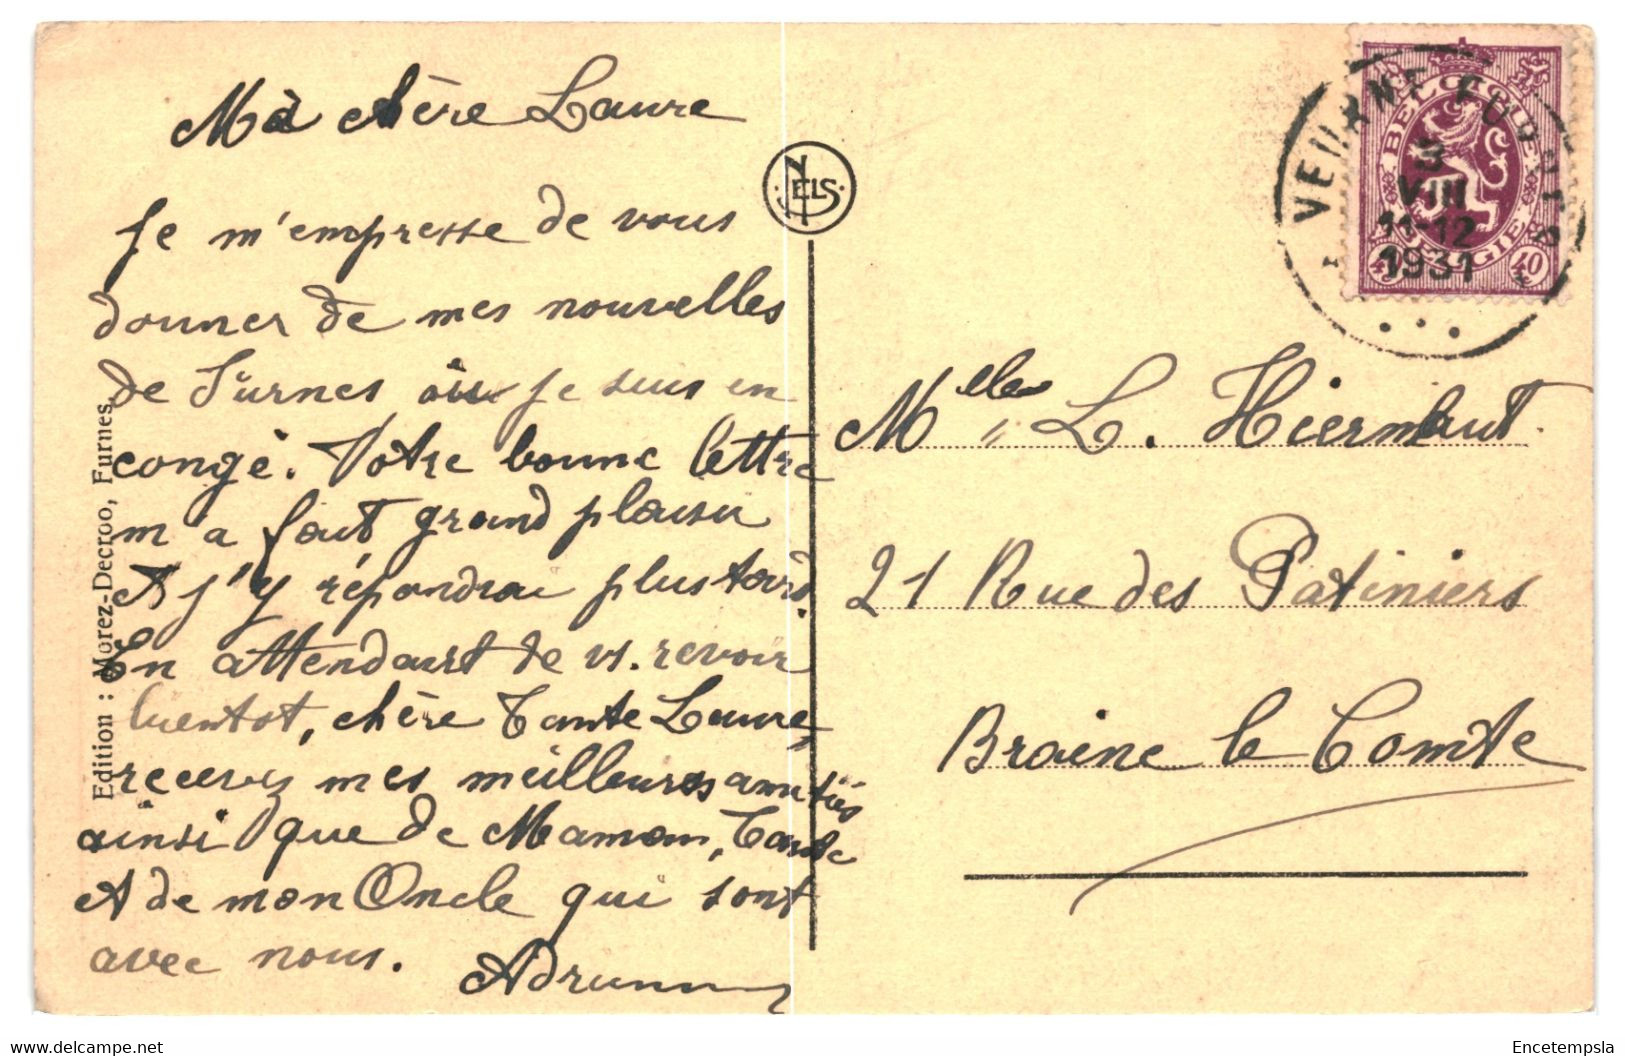 Ma chère Laure
Je m'empresse de vous
donner de mes nouvelles
de Furnes où je suis en
congé. Votre bonne lettre
m'a fait grand plaisir
et j'y répondrai plus tard.
En attendant de vs. revoir
bientot, chère Tante Laure,
recevez mes meilleures amitiés
ainsi que de Maman, Tante
et de mon Oncle qui sont
avec nous.
Edition : Morez-Decroo, Furnes.
NELS
VEURNE FURNES
3
VIII
11-12
1931
BELGIQUE
BELGIE
40 40
Melle L. Hiernaut
21 Rue des Patiniers
Braine le Comte
www.delcampe.net
Encetempsla